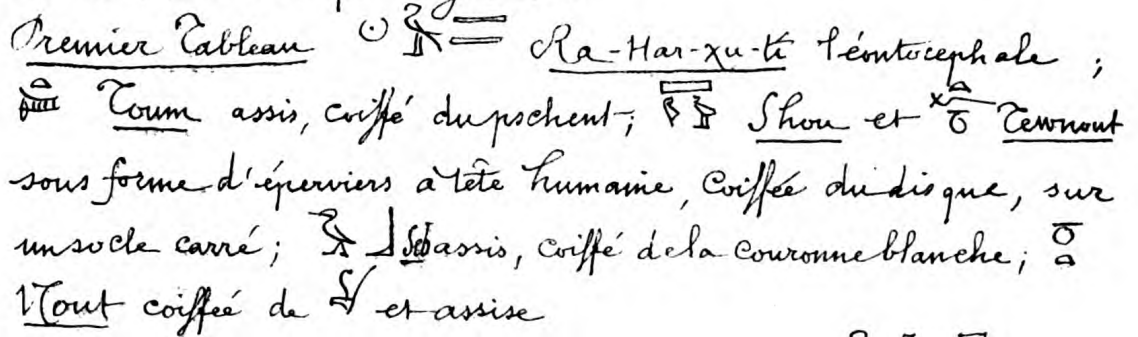 Premier Tableau Ra-Har-χu-ti léontocephale ;
Toum assis, coiffé du pschent ; Shou et Tewnout
sous forme d'éperviers à tête humaine, coiffée du disque, sur
un socle carré ; Seb assis, coiffé de la couronne blanche ;
Nout coiffée de et assise